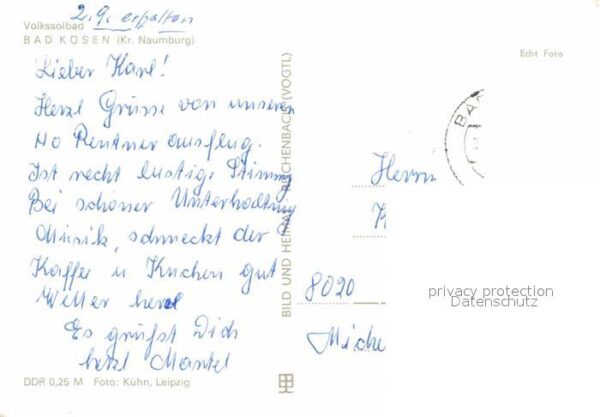 2.9. erhalten
Volkssolbad
BAD KÖSEN (Kr. Naumburg)
Lieber Karl!
Herzl Grüsse von unseren
Ho Rentner ausflug.
Ist recht lustige Stimmg
Bei schöner Unterhaltung
Musik, schmeckt der
Kaffee u Kuchen gut
Wetter herrl
Es grüßt Dich
herzl
DDR 0,25 M Foto: Kühn, Leipzig
BILD UND HEIMAT REICHENBACH (VOGTL)
Echt Foto
BAD
Herrn
8020
privacy protection
Datenschutz